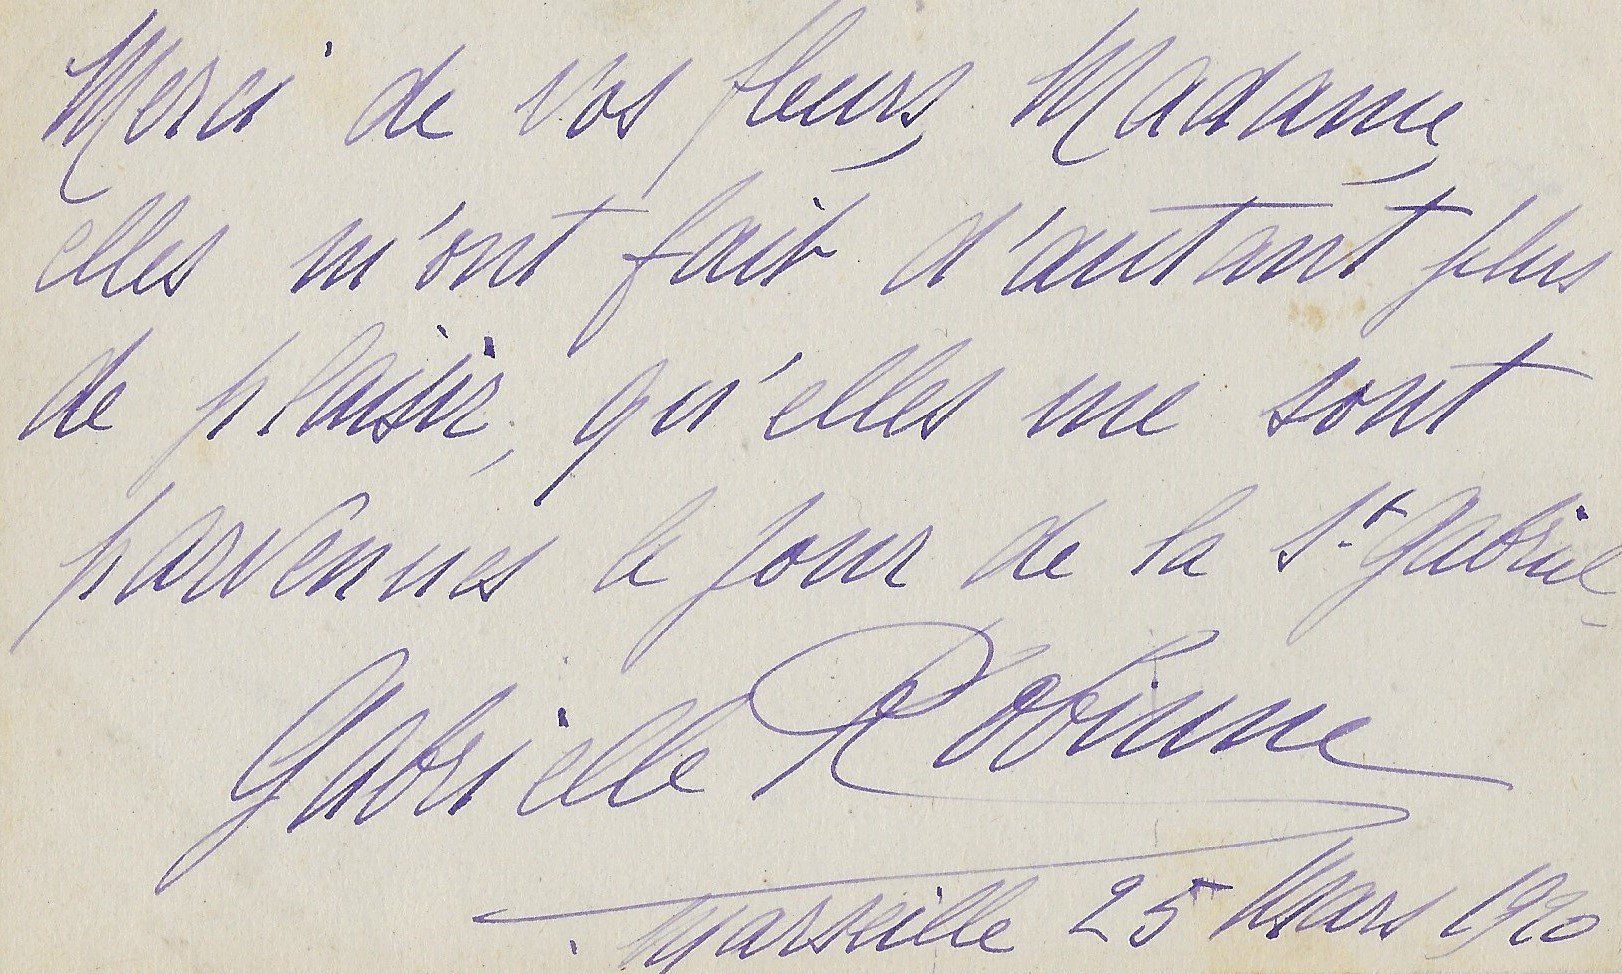 Merci de vos fleurs, Madame,
elles m'ont fait d'autant plus
de plaisir, qu'elles me sont
parvenues le jour de la St. Gabriel -
Gabrielle Robinne
Marseille 25 Mars 1920